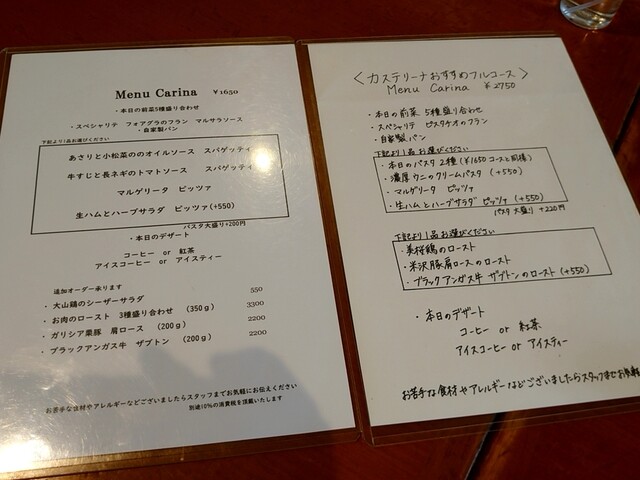 Menu Carina ￥1650
・本日の前菜5種盛り合わせ
・スペシャリテ フォアグラのフラン マルサラソース
・自家製パン
下記より1品お選びください
あさりと小松菜ののオイルソース スパゲッティ
牛すじと長ネギのトマトソース スパゲッティ
マルゲリータ ピッツァ
生ハムとハーブサラダ ピッツァ(+550)
パスタ大盛り+200円
・本日のデザート
コーヒー or 紅茶
アイスコーヒー or アイスティー
追加オーダー承ります
・大山鶏のシーザーサラダ 550
・お肉のロースト 3種盛り合わせ (350g) 3300
・ガリシア栗豚 肩ロース (200g) 2200
・ブラックアンガス牛 ザブトン (200g) 2200
お苦手な食材やアレルギーなどございましたらスタッフまでお気軽にお伝えください
別途10%の消費税を頂戴いたします
〈カステリーナおすすめフルコース〉
Menu Carina ￥2750
・本日の前菜 5種盛り合わせ
・スペシャリテ ピスタチオのフラン
・自家製パン
下記より1品お選びください
・本日のパスタ 2種 (￥1650コースと同様)
・濃厚ウニのクリームパスタ (+550)
・マルゲリータ ピッツァ
・生ハムとハーブサラダ ピッツァ (+550)
パスタ大盛り +220円
下記より1品お選びください
・美桜鶏のロースト
・米沢豚肩ロースのロースト
・ブラックアンガス牛 ザブトンのロースト(+550)
・本日のデザート
コーヒー or 紅茶
アイスコーヒー or アイスティー
お苦手な食材やアレルギーなどございましたらスタッフまでお気軽